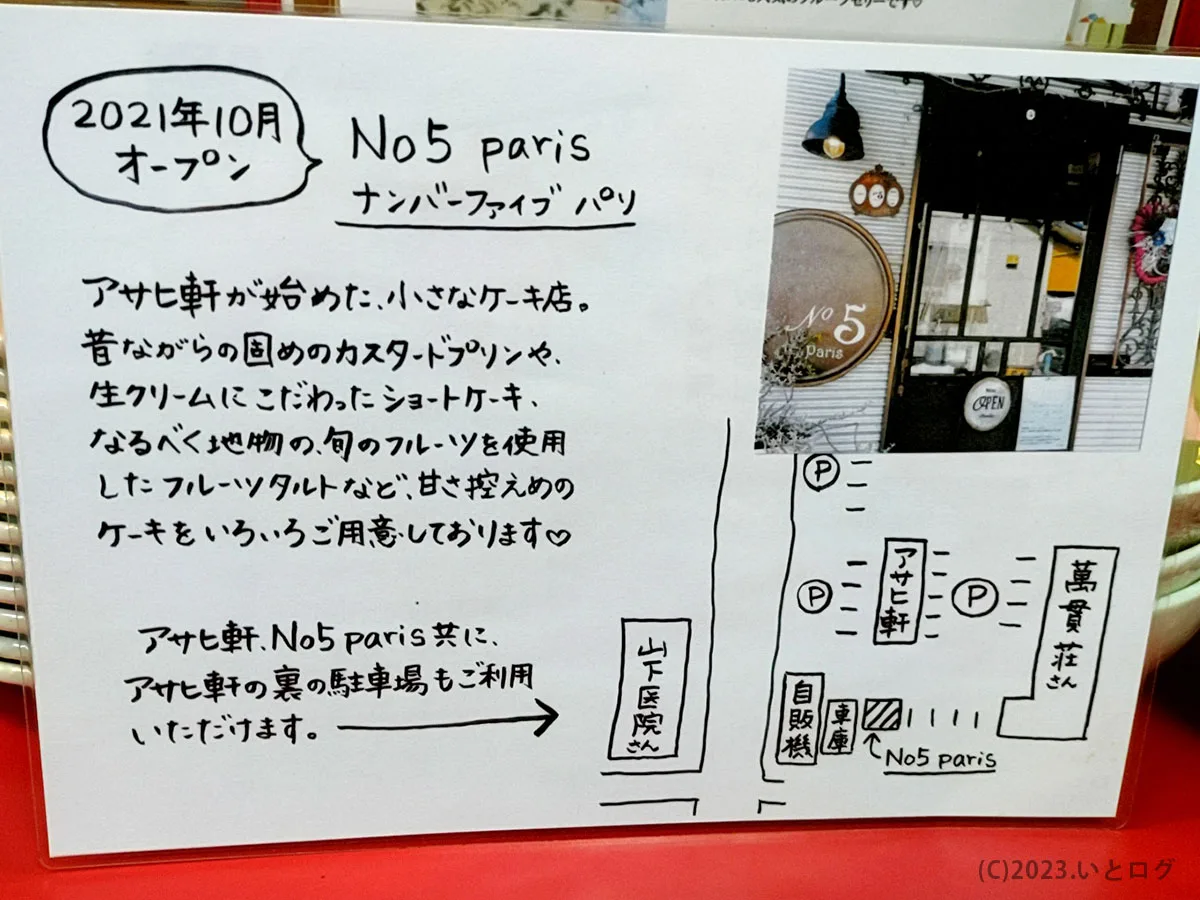 2021年10月
オープン
No5 paris
ナンバーファイブ パリ
アサヒ軒が始めた、小さなケーキ店。
昔ながらの固めのカスタードプリンや、
生クリームにこだわったショートケーキ、
なるべく地物の、旬のフルーツを使用
したフルーツタルトなど、甘さ控えめの
ケーキをいろいろご用意しております♡
アサヒ軒、No5 paris共に、
アサヒ軒の裏の駐車場もご利用
いただけます。
No 5
paris
OPEN
P
P
アサヒ軒
P
萬貫荘さん
山下医院さん
自販機
車庫
No5 paris
(C)2023.いとログ